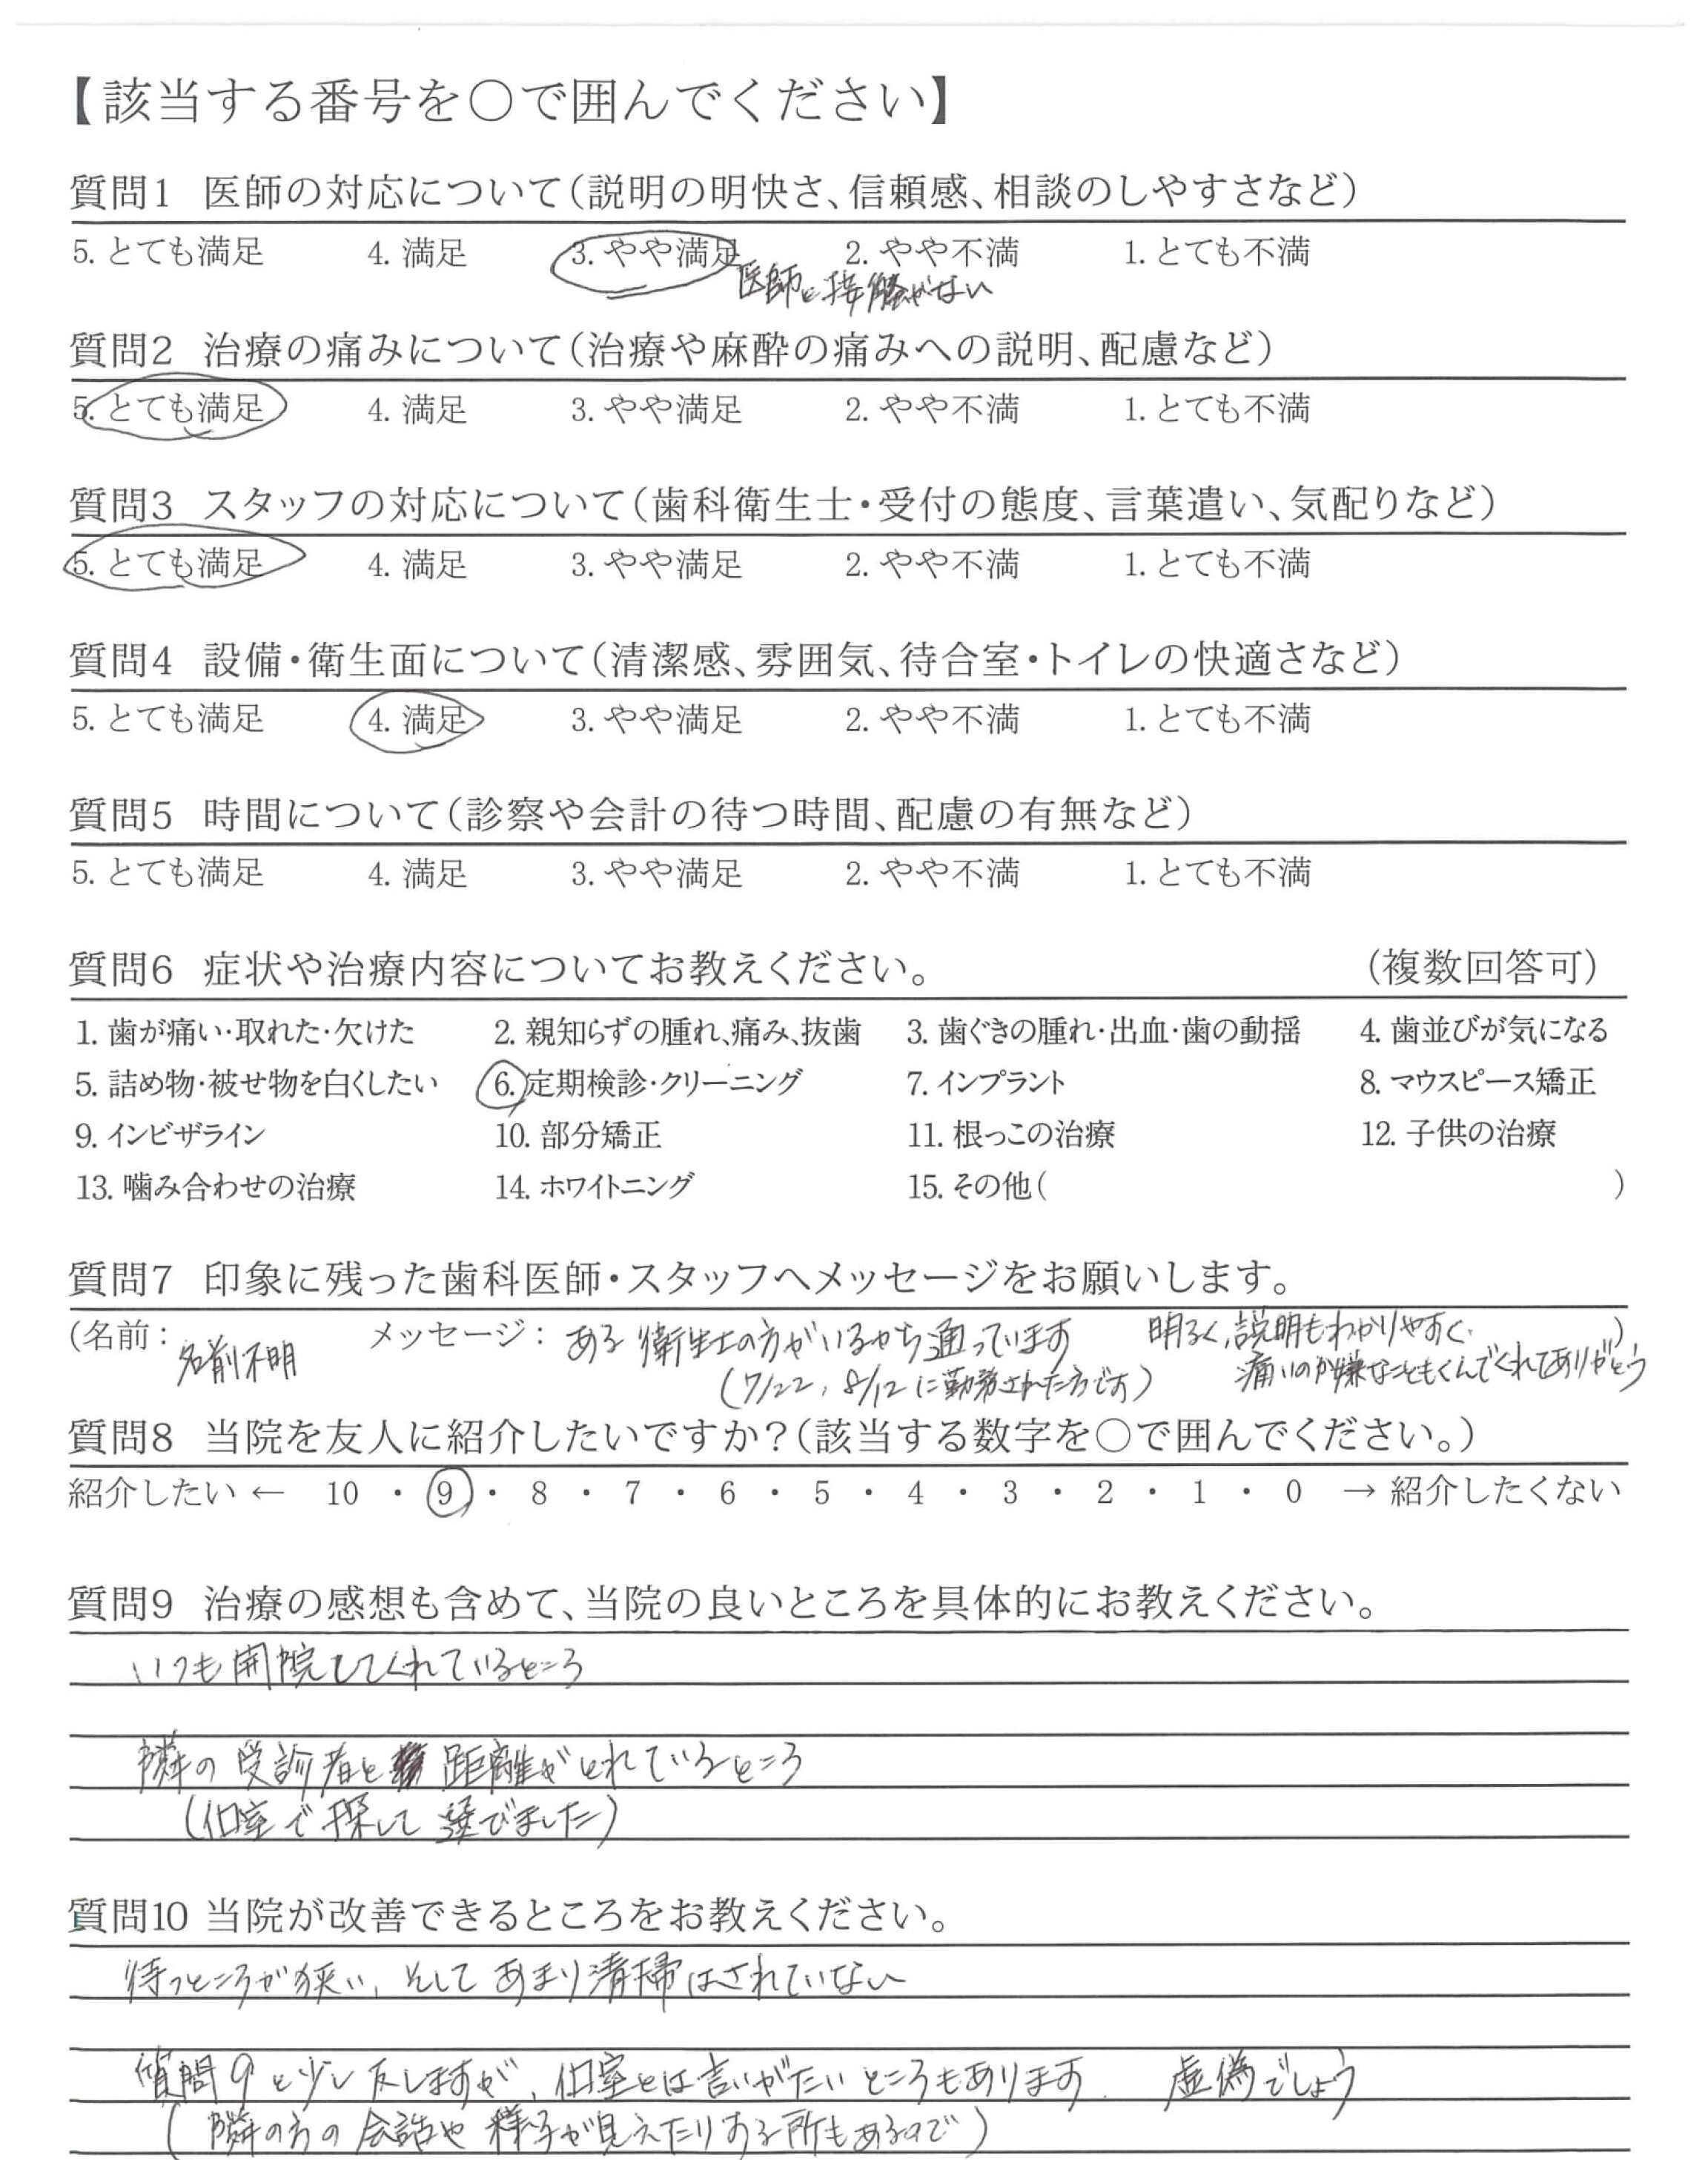 【該当する番号を○で囲んでください】
質問1 医師の対応について(説明の明快さ、信頼感、相談のしやすさなど)
5. とても満足 4. 満足 3. やや満足 2. やや不満 1. とても不満
医師と接触がない
質問2 治療の痛みについて(治療や麻酔の痛みへの説明、配慮など)
5. とても満足 4. 満足 3. やや満足 2. やや不満 1. とても不満
質問3 スタッフの対応について(歯科衛生士・受付の態度、言葉遣い、気配りなど)
5. とても満足 4. 満足 3. やや満足 2. やや不満 1. とても不満
質問4 設備・衛生面について(清潔感、雰囲気、待合室・トイレの快適さなど)
5. とても満足 4. 満足 3. やや満足 2. やや不満 1. とても不満
質問5 時間について(診察や会計の待つ時間、配慮の有無など)
5. とても満足 4. 満足 3. やや満足 2. やや不満 1. とても不満
質問6 症状や治療内容についてお教えください。 (複数回答可)
1. 歯が痛い・取れた・欠けた 2. 親知らずの腫れ、痛み、抜歯 3. 歯ぐきの腫れ・出血・歯の動揺 4. 歯並びが気になる
5. 詰め物・被せ物を白くしたい 6. 定期検診・クリーニング 7. インプラント 8. マウスピース矯正
9. インビザライン 10. 部分矯正 11. 根っこの治療 12. 子供の治療
13. 噛み合わせの治療 14. ホワイトニング 15. その他( )
質問7 印象に残った歯科医師・スタッフへメッセージをお願いします。
(名前: 名前不明 メッセージ: ある衛生士の方がいるから通っています 明るく、説明もわかりやすく、 )
(7/22, 8/12に勤務された方です) 痛いのが嫌なこともくんでくれてありがとう
質問8 当院を友人に紹介したいですか?(該当する数字を○で囲んでください。)
紹介したい ← 10 ・ 9 ・ 8 ・ 7 ・ 6 ・ 5 ・ 4 ・ 3 ・ 2 ・ 1 ・ 0 → 紹介したくない
質問9 治療の感想も含めて、当院の良いところを具体的にお教えください。
いつも開院してくれているところ
隣の受診者と距離がとれているところ
(個室で探して選びました)
質問10 当院が改善できるところをお教えください。
待つところが狭い、そしてあまり清掃はされていない
質問9と少し反しますが、個室とは言いがたいところもあります. 虚偽でしょう
(隣の方の会話や様子が見えたりする所もあるので)